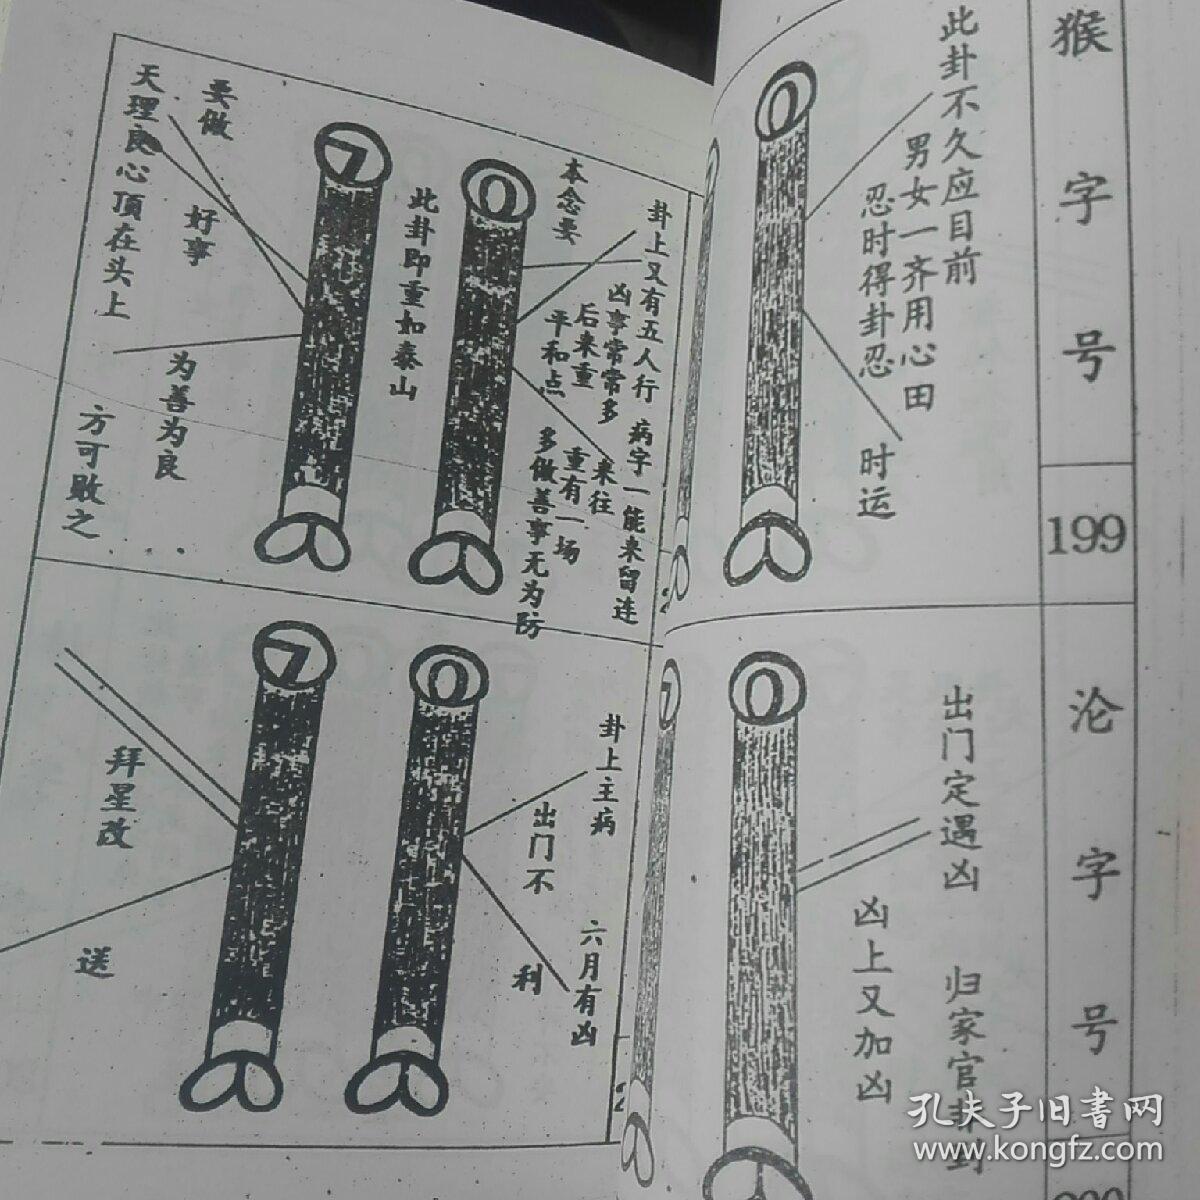 猴字号
199
此卦不久应目前
男女一齐用心田
忍时得卦忍
时运
0
沦字号
出门定遇凶
归家官
凶上又加凶
0
卦上又有五人行
病字一能来留连
本念要
凶事常常多
来往
后来重
重有一场
平和点
多做善事无为防
0
此卦即重如泰山
7
要做
好事
天理良心頂在头上
为善为良
方可敗之
卦上主病
六月有凶
出门不
利
0
7
拜星改
送
孔夫子旧書网
www.kongfz.com